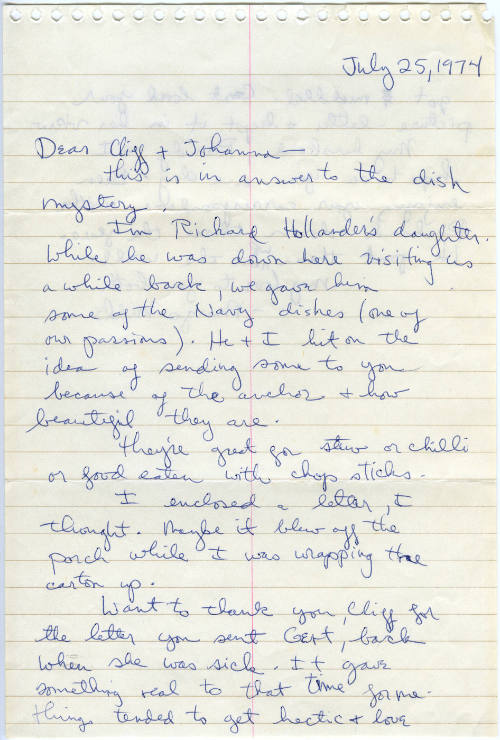 July 25, 1974
Dear Cliff + Johanna —
this is in answer to the dish
mystery.
I'm Richard Hollander's daughter.
While he was down here visiting us
a while back, we gave him
some of the Navy dishes (one of
our passions). He + I hit on the
idea of sending some to you
because of the anchor + how
beautiful they are.
They're great for stew or chilli
or food eaten with chop sticks.
I enclosed a letter, I
thought. Maybe it blew off the
porch while I was wrapping the
carton up.
Want to thank you, Cliff for
the letter you sent Gert, back
when she was sick. It gave
something real to that time for me.
things tended to get hectic + love